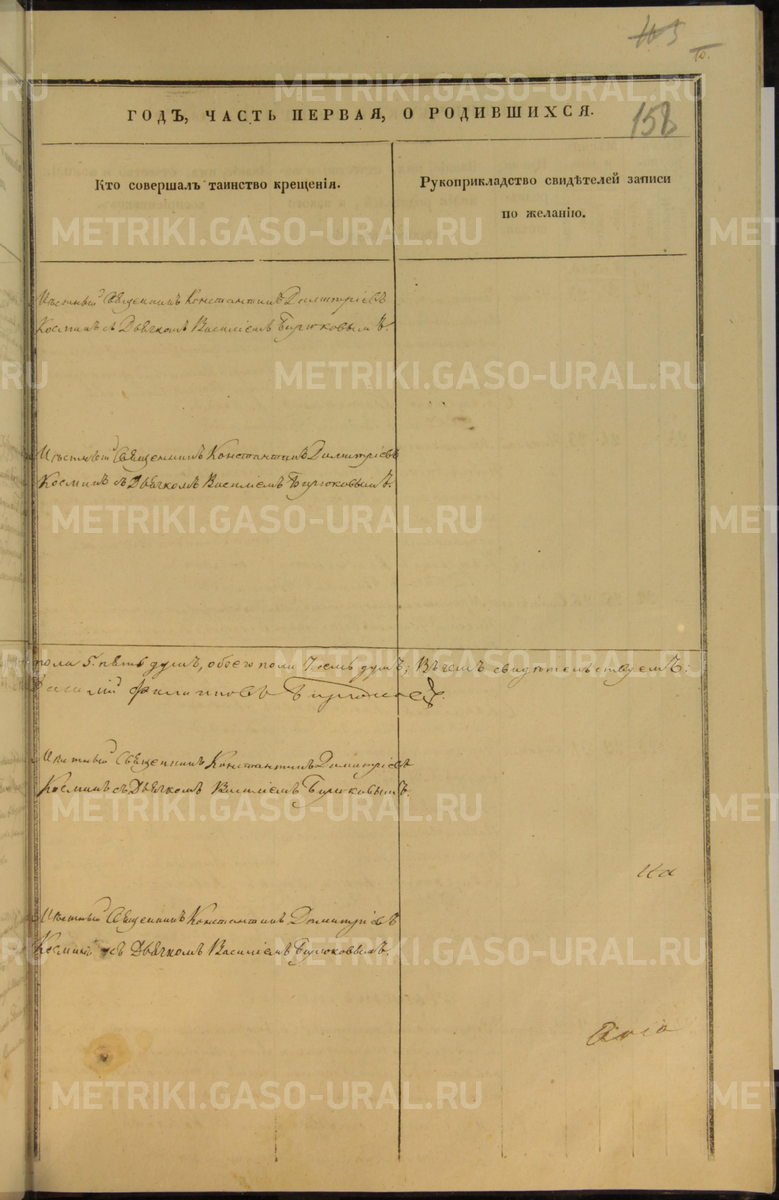 158
ГОДЪ, ЧАСТЬ ПЕРВАЯ, О РОДИВШИХСЯ.
Кто совершалъ таинство крещенія.
Рукоприкладство свидѣтелей записи
по желанію.
Мѣстный Священникъ Константинъ Димитріевъ
Космин съ Дьячкомъ Василіемъ Бирюковымъ.
Мѣстный Священникъ Константинъ Димитріевъ
Космин съ Дьячкомъ Василіемъ Бирюковымъ.
пола 5. пять душъ, обоего пола 7. семь душъ; Въ чемъ свидѣтельствуемъ:
Василій Филиповъ Бирюковъ
Мѣстный Священникъ Константинъ Димитріевъ
Космин съ Дьячкомъ Василіемъ Бирюковымъ.
Мѣстный Священникъ Константинъ Димитріевъ
Космин съ Дьячкомъ Василіемъ Бирюковымъ.
METRIKI.GASO-URAL.RU